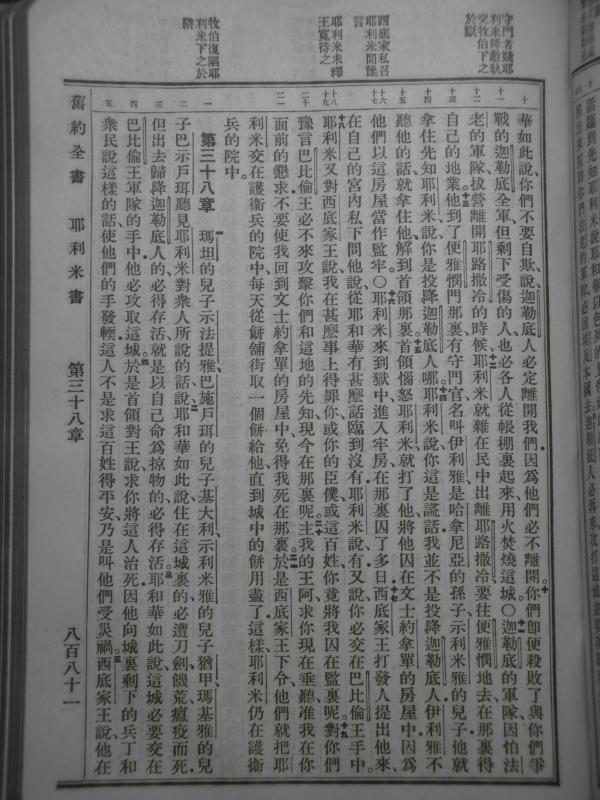 守門者疑耶
利米降敵執
交牧伯下之
於獄
西底家私召
耶利米問豫
言
耶利米求釋
王寬待之
牧伯復陷耶
利米下之於
阱
十 華如此說、你們不要自欺說迦勒底人必定離開我們、因為他們必不離開、你們卽便殺敗了與你們爭
十一 戰的迦勒底全軍、但剩下受傷的人、也必各人從帳棚裏起來用火焚燒這城〇迦勒底的軍隊因怕法
十二 老的軍隊拔營離開耶路撒冷的時候、耶利米就雜在民中出離耶路撒冷、要往便雅憫地去、在那裏得
十三 自己的地業、他到了便雅憫門、那裏有守門官名叫伊利雅、是哈拿尼亞的孫子示利米雅的兒子、他就
十四 拿住先知耶利米說、你是投降迦勒底人哪、耶利米說、你這是謊話、我並不是投降迦勒底人、伊利雅不
十五 聽他的話、就拿住他、解到首領那裏、首領惱怒耶利米、就打了他、將他囚在文士約拿單的房屋中、因為
十六 十七 他們以這房屋當作監牢〇耶利米來到獄中、進入牢房、在那裏囚了多日、西底家王打發人提出他來、
在自己的宮內私下問他說、從耶和華有甚麼話臨到沒有、耶利米說有、又說你必交在巴比倫王手中、
十八 十九 耶利米又對西底家王說、我在甚麼事上得罪你、或你的臣僕、或這百姓、你竟將我囚在監裏呢、對你們
二十 豫言巴比倫王必不來攻擊你們和這地的先知、現今在那裏呢、主我的王阿、求你現在垂聽、准我在你
二一 面前的懇求、不要使我回到文士約拿單的房屋中、免得我死在那裏、於是西底家王下令、他們就把耶
利米交在護衛兵的院中、每天從餅舖街取一個餅給他、直到城中的餅用盡了、這樣耶利米仍在護衛
兵的院中。
一 第三十八章 瑪坦的兒子示法提雅、巴施戶珥的兒子基大利、示利米雅的兒子猶甲、瑪基雅的兒
二 子巴示戶珥、聽見耶利米對衆人所說的話說、耶和華如此說、住在這城裏的必遭刀劍饑荒瘟疫而死、
三 但出去歸降迦勒底人的必得存活、就是以自己命為掠物的、必得存活、耶和華如此說、這城必要交在
四 巴比倫王軍隊的手中、他必攻取這城、於是首領對王說、求你將這人治死、因他向城裏剩下的兵丁和
五 衆民說這樣的話、使他們的手發輭、這人不是求這百姓得平安、乃是叫他們受災禍、西底家王說、他在
舊約全書 耶利米書 第三十八章 八百八十一